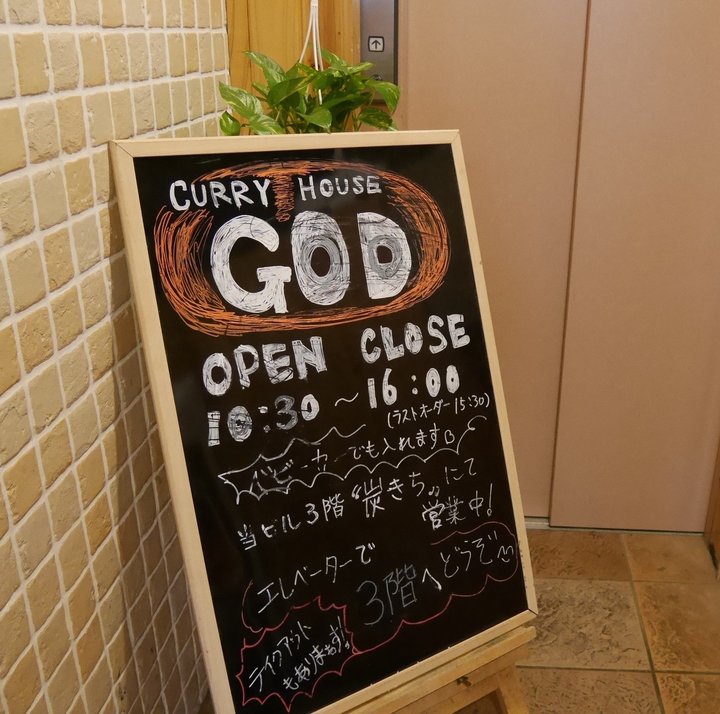 CURRY HOUSE
GOD
OPEN CLOSE
10:30 ～ 16:00
(ラストオーダー 15:30)
ベビーカーでも入れます
当ビル3階“炭きち”にて
営業中!
エレベーターで
3階へどうぞ
テイクアウト
もあります!!